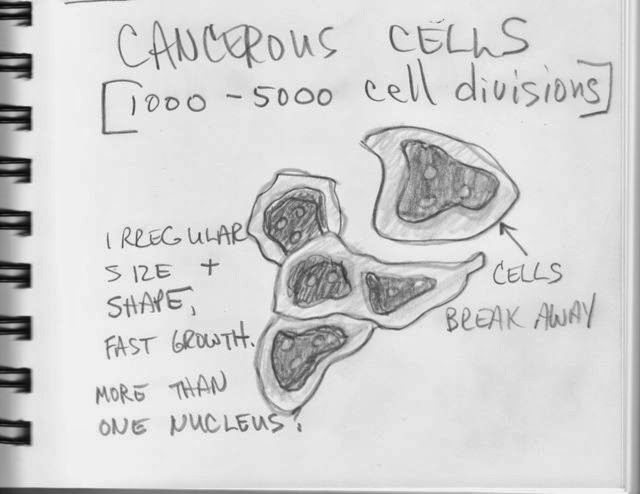 CANCEROUS CELLS
[1000 - 5000 cell divisions]
IRREGULAR
SIZE +
SHAPE,
FAST GROWTH.
MORE THAN
ONE NUCLEUS.
CELLS
BREAK AWAY